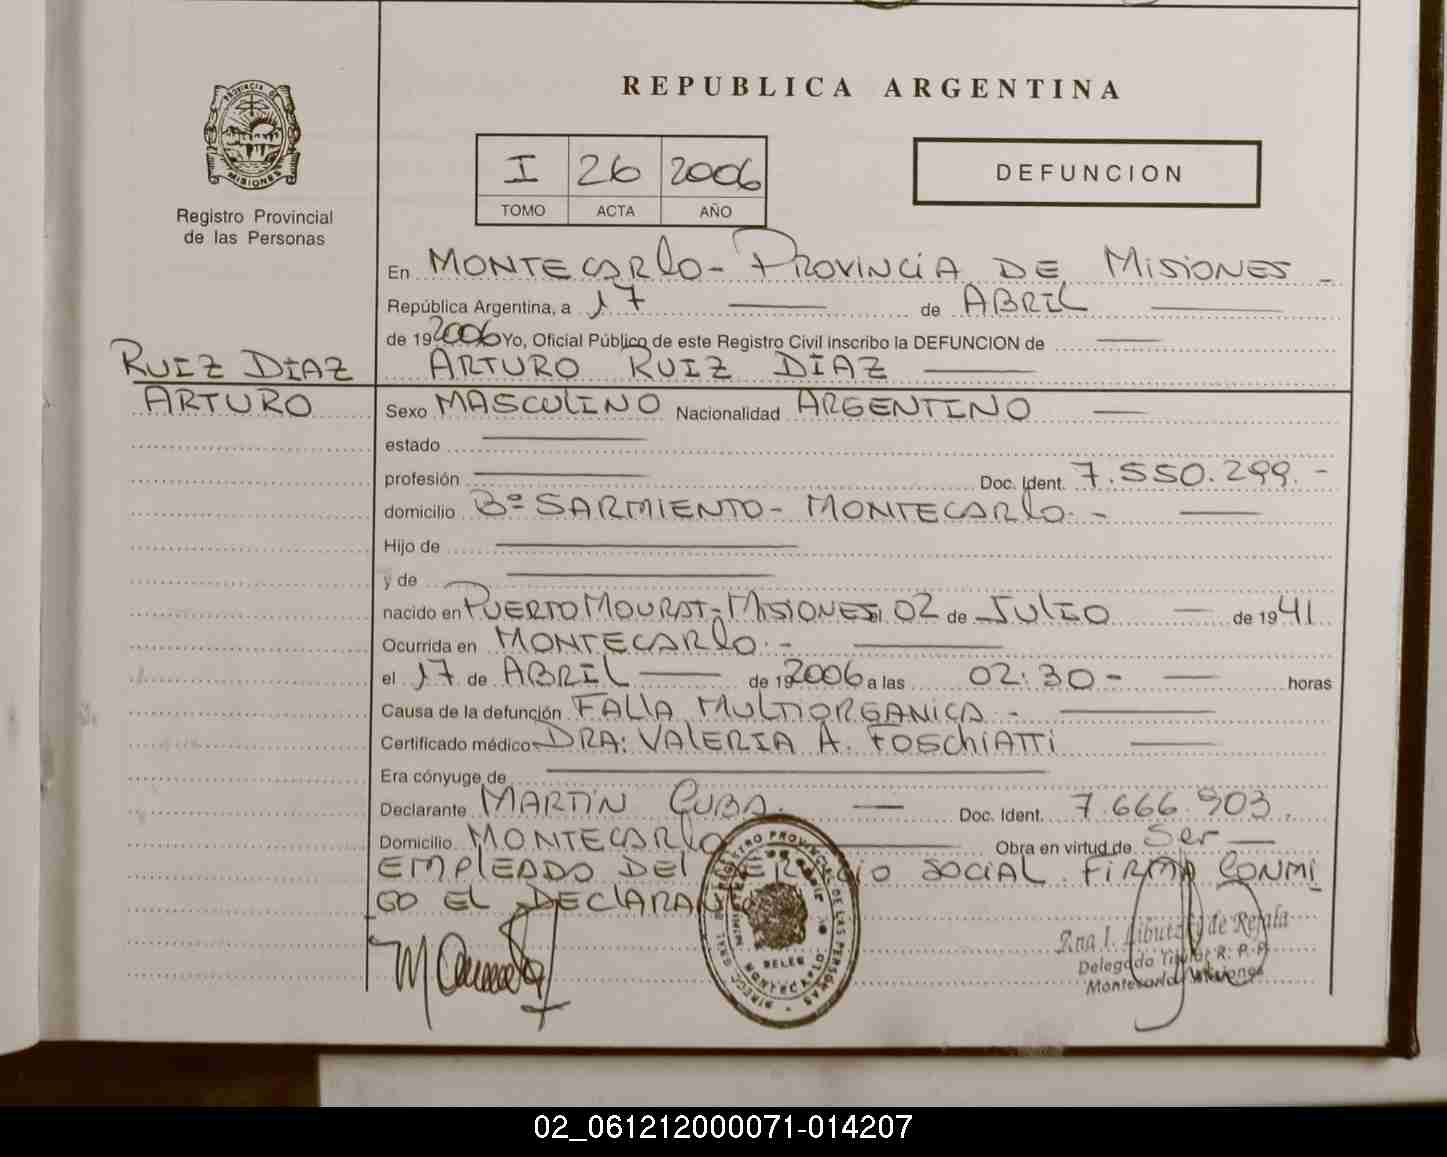 REPUBLICA ARGENTINA
PROVINCIA DE
MISIONES
Registro Provincial
de las Personas
I 26 2006
TOMO ACTA AÑO
DEFUNCION
En MONTECARlO- PROVINCiA DE MisiONES -
República Argentina, a 17 de ABRIL
de 192006 Yo, Oficial Público de este Registro Civil inscribo la DEFUNCION de
RUIZ DIAZ
ARTURO
ARTURO RUIZ DIAZ
Sexo MASCULINO Nacionalidad ARGENTINO
estado
profesión Doc. Ident. 7.550.299.-
domicilio Bº SARMIENTO- MONTECARlO.-
Hijo de
y de
nacido en PUERTO MOURAT-MISIONES el 02 de JULIO de 1941
Ocurrida en MONTECARlO.-
el 17 de ABRIL de 192006 a las 02:30- horas
Causa de la defunción FALLA MULTIORGANICA.-
Certificado médico DRA: VALERIA A. FOSCHiATTi
Era cónyuge de
Declarante MARTIN CUBA. Doc. Ident. 7.666.903.
Domicilio MONTECARlO Obra en virtud de Ser
EMPLEADO DEL SERVICIO SOCIAL. FiRMA CONMI
GO EL DECLARANTE
de Rejala
Delegada Titular R. P. P.
Montecarlo Misiones
02_061212000071-014207